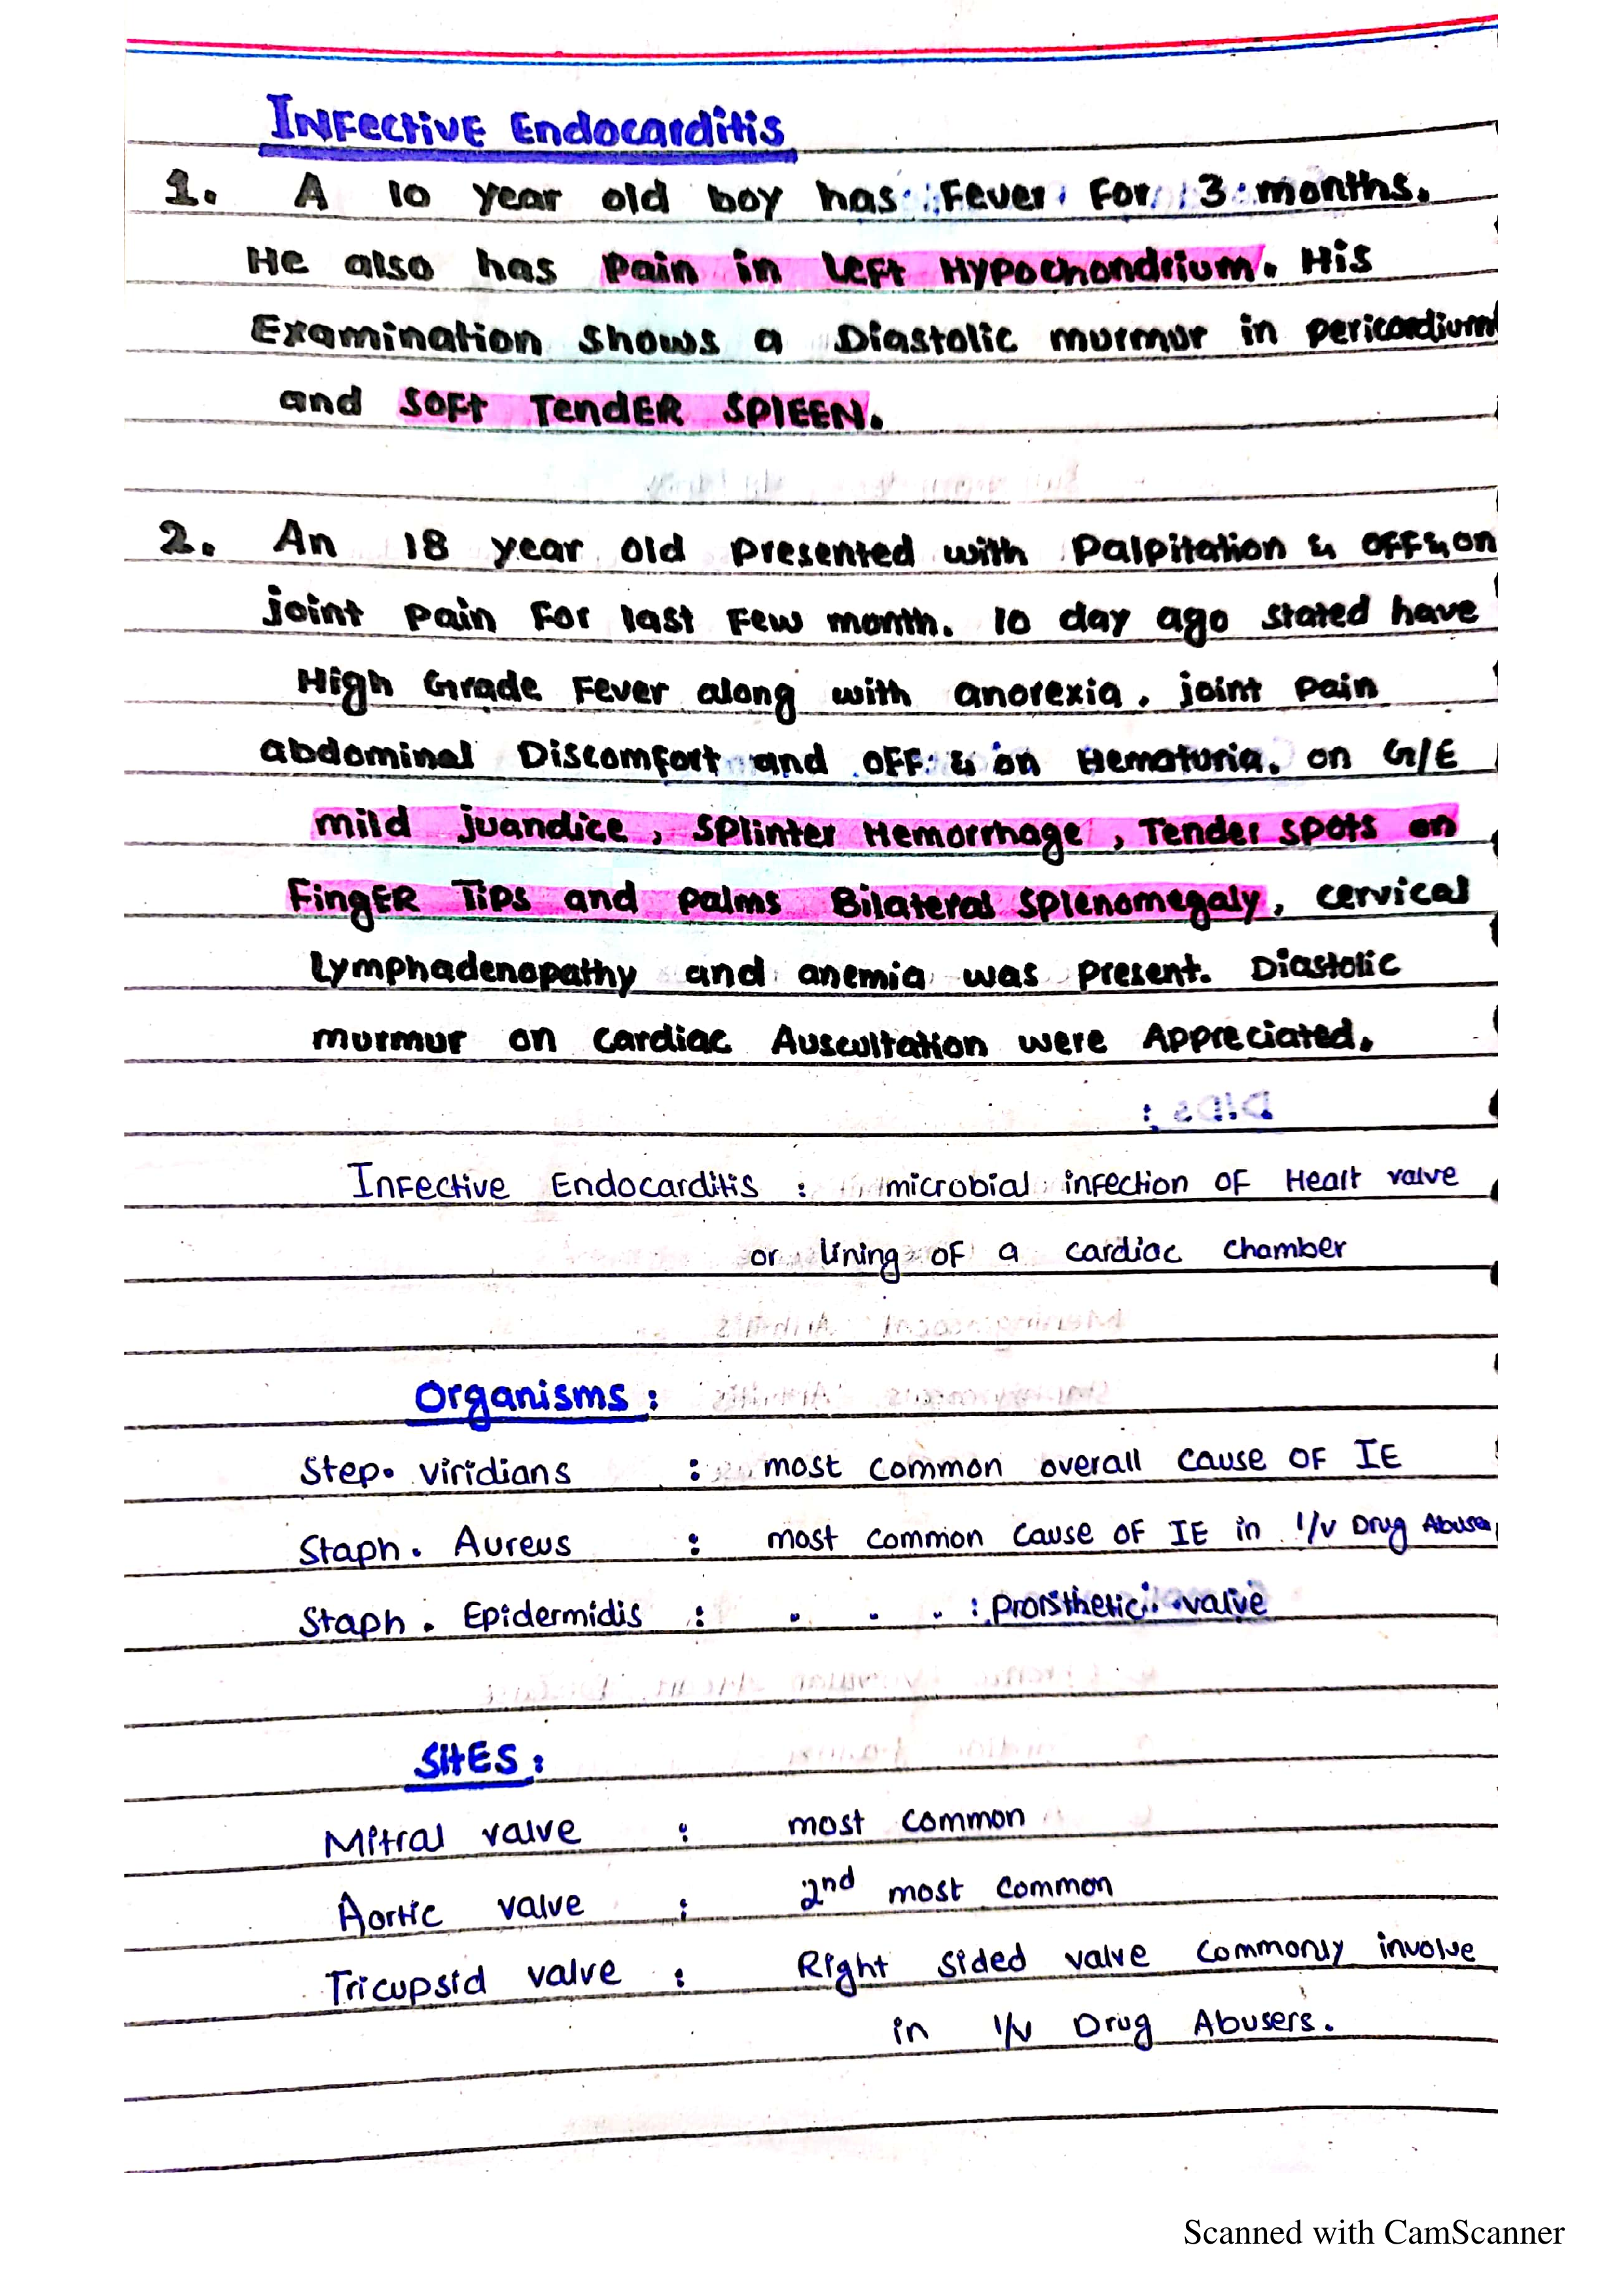 INFective Endocarditis
1. A 10 year old boy has Fever For 3 months.
He also has Pain in Left Hypochondrium. His
Examination Shows a Diastolic murmur in pericardium
and SOFt TendER SPlEEN.
2. An 18 year old Presented with Palpitation & OFF & on
joint Pain For last Few month. 10 day ago stated have
High Grade Fever along with anorexia, joint Pain
abdominal Discomfort and OFF & on Hematuria. on G/E
mild juandice, Splinter Hemorrhage, Tender spots on
FingER Tips and Palms Bilateral Splenomegaly, cervical
Lymphadenopathy and anemia was Present. Diastolic
murmur on Cardiac Auscultation were Appreciated.
Infective Endocarditis : microbial infection of Heart valve
or lining of a cardiac chamber
Organisms :
Step. viridians : most common overall cause of IE
Staph. Aureus : most common cause of IE in I/V Drug Abuser
Staph. Epidermidis : . . . : Prosthetic valve
SitES :
Mitral valve : most common
Aortic valve : 2nd most common
Tricupsid valve : Right sided valve commonly involve
in I/V Drug Abusers.
Scanned with CamScanner